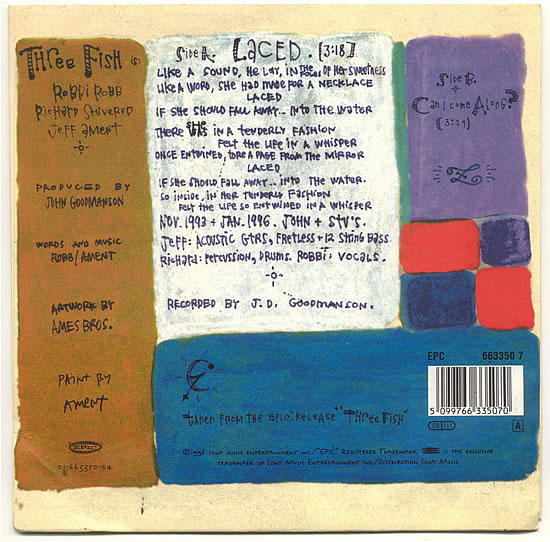 THree FISH is:
ROBBi ROBB
RicHard STUVerud
Jeff AMeNT
PRODUCED BY
JOHN GOODMANSON
WORDS AND MUSIC
ROBB/AMENT
ARTWORK BY
AMES BROS.
PAINT BY
AMENT
EPIC
01-663350-04
SIDE A. LACED. [3:18]
LIKE A SOUND, HE LAY, IN OF HER SWEETNESS
LIKE A WORD, SHE HAD MADE FOR A NECKLACE
LACED
IF SHE SHOULD FALL AWAY.. INTO THE WATER
THERE IN A TENDERLY FASHION
FELT THE LIFE IN A WHISPER
ONCE ENTWINED, TORE A PAGE FROM THE MIRROR
LACED
IF SHE SHOULD FALL AWAY.. INTO THE WATER.
SO INSIDE, IN HER TENDERLY FASHION
FELT THE LIFE SO ENTWINED IN A WHISPER
NOV. 1993 + JAN. 1996. JOHN + STV'S.
JEFF: ACOUSTIC GTRS, FRETLESS + 12 STRING BASS.
RICHARD: PERCUSSION, DRUMS. ROBBI: VOCALS.
RECORDED BY J.D. GOODMANSON.
SIDE B.
CAN I COME ALONG?
(3:29)
EPC 663350 7
5 099766 335070
A
TAKEN FROM THE EPIC RELEASE "THree FISH"
©1996 SONY MUSIC ENTERTAINMENT INC./"EPIC" REGISTERED TRADEMARK IS THE EXCLUSIVE
TRADEMARK OF SONY MUSIC ENTERTAINMENT INC./DISTRIBUTION SONY MUSIC